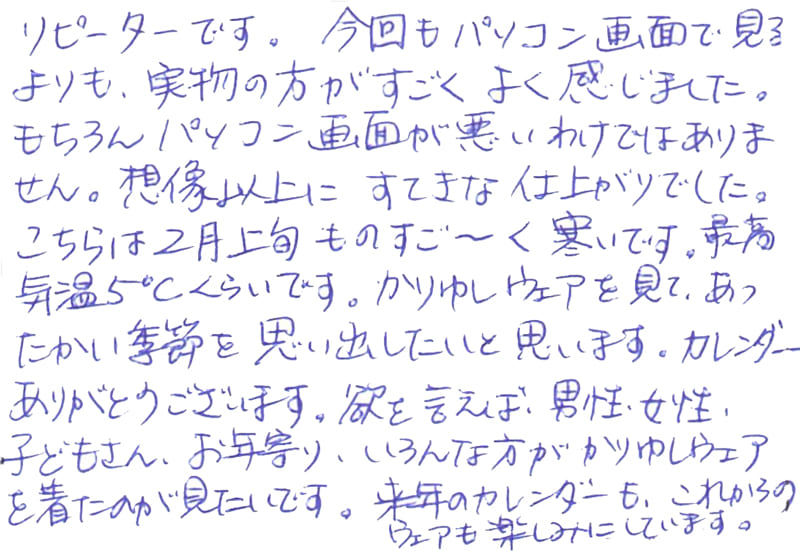 リピーターです。 今回もパソコン画面で見る
よりも、実物の方がすごく よく感じました。
もちろんパソコン画面が悪いわけではありま
せん。想像以上に すてきな仕上がりでした。
こちらは2月上旬 ものすご〜く 寒いです。最高
気温5℃くらいです。かりゆしウェアを見て、あっ
たかい季節を思い出したいと思います。カレンダー
ありがとうございます。欲を言えば、男性、女性、
子どもさん、お年寄り、いろんな方がかりゆしウェア
を着たのが見たいです。来年のカレンダーも、これからの
ウェアも楽しみにしています。